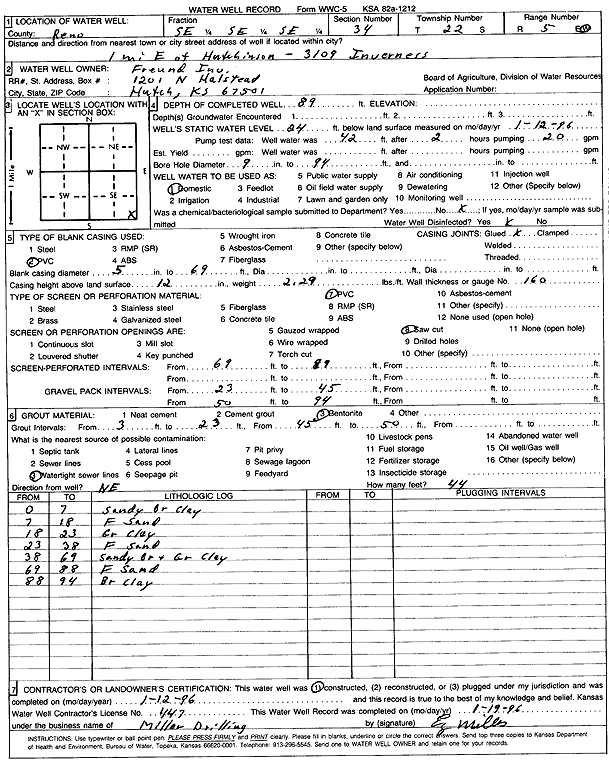 WATER WELL RECORD Form WWC-5 KSA 82a-1212
1 LOCATION OF WATER WELL: Fraction Section Number Township Number Range Number
County: Reno SE ¼ SE ¼ SE ¼ 34 T 22 S R 5 E/W
Distance and direction from nearest town or city street address of well if located within city?
1 mi E of Hutchinson - 3109 Inverness
2 WATER WELL OWNER: Freund Inv.
RR#, St. Address, Box # : 1201 N Halstead Board of Agriculture, Division of Water Resources
City, State, ZIP Code : Hutch, KS 67501 Application Number:
3 LOCATE WELL'S LOCATION WITH AN "X" IN SECTION BOX:
N
NW NE
W E
SW SE
X
S
1 Mile
4 DEPTH OF COMPLETED WELL 89 ft. ELEVATION:
Depth(s) Groundwater Encountered 1. ft. 2. ft. 3. ft.
WELL'S STATIC WATER LEVEL 24 ft. below land surface measured on mo/day/yr 1-12-96
Pump test data: Well water was 42 ft. after 2 hours pumping 20 gpm
Est. Yield gpm: Well water was ft. after hours pumping gpm
Bore Hole Diameter 9 in. to 94 ft., and in. to ft.
WELL WATER TO BE USED AS: 5 Public water supply 8 Air conditioning 11 Injection well
1 Domestic 3 Feedlot 6 Oil field water supply 9 Dewatering 12 Other (Specify below)
2 Irrigation 4 Industrial 7 Lawn and garden only 10 Monitoring well
Was a chemical/bacteriological sample submitted to Department? Yes No X; If yes, mo/day/yr sample was submitted
Water Well Disinfected? Yes X No
5 TYPE OF BLANK CASING USED: 5 Wrought iron 8 Concrete tile CASING JOINTS: Glued X Clamped
1 Steel 3 RMP (SR) 6 Asbestos-Cement 9 Other (specify below) Welded
2 PVC 4 ABS 7 Fiberglass Threaded
Blank casing diameter 5 in. to 69 ft., Dia in. to ft., Dia in. to ft.
Casing height above land surface 12 in., weight 2.29 lbs./ft. Wall thickness or gauge No. 160
TYPE OF SCREEN OR PERFORATION MATERIAL: 7 PVC 10 Asbestos-cement
1 Steel 3 Stainless steel 5 Fiberglass 8 RMP (SR) 11 Other (specify)
2 Brass 4 Galvanized steel 6 Concrete tile 9 ABS 12 None used (open hole)
SCREEN OR PERFORATION OPENINGS ARE: 5 Gauzed wrapped 8 Saw cut 11 None (open hole)
1 Continuous slot 3 Mill slot 6 Wire wrapped 9 Drilled holes
2 Louvered shutter 4 Key punched 7 Torch cut 10 Other (specify)
SCREEN-PERFORATED INTERVALS: From 69 ft. to 89 ft., From ft. to ft.
From ft. to ft., From ft. to ft.
GRAVEL PACK INTERVALS: From 23 ft. to 45 ft., From ft. to ft.
From 50 ft. to 94 ft., From ft. to ft.
6 GROUT MATERIAL: 1 Neat cement 2 Cement grout 3 Bentonite 4 Other
Grout Intervals: From 3 ft. to 23 ft., From 45 ft. to 50 ft., From ft. to ft.
What is the nearest source of possible contamination: 10 Livestock pens 14 Abandoned water well
1 Septic tank 4 Lateral lines 7 Pit privy 11 Fuel storage 15 Oil well/Gas well
2 Sewer lines 5 Cess pool 8 Sewage lagoon 12 Fertilizer storage 16 Other (specify below)
3 Watertight sewer lines 6 Seepage pit 9 Feedyard 13 Insecticide storage
Direction from well? NE How many feet? 44
FROM TO LITHOLOGIC LOG FROM TO PLUGGING INTERVALS
0 7 Sandy Br Clay
7 18 F Sand
18 23 Gr Clay
23 38 F Sand
38 69 Sandy Br + Gr Clay
69 88 F Sand
88 94 Br Clay
7 CONTRACTOR'S OR LANDOWNER'S CERTIFICATION: This water well was (1) constructed, (2) reconstructed, or (3) plugged under my jurisdiction and was
completed on (mo/day/year) 1-12-96 and this record is true to the best of my knowledge and belief. Kansas
Water Well Contractor's License No. 447 This Water Well Record was completed on (mo/day/yr) 1-19-96
under the business name of Miller Drilling by (signature) Miller
INSTRUCTIONS: Use typewriter or ball point pen. PLEASE PRESS FIRMLY and PRINT clearly. Please fill in blanks, underline or circle the correct answers. Send top three copies to Kansas Department
of Health and Environment, Bureau of Water, Topeka, Kansas 66620-0001. Telephone: 913-296-5545. Send one to WATER WELL OWNER and retain one for your records.